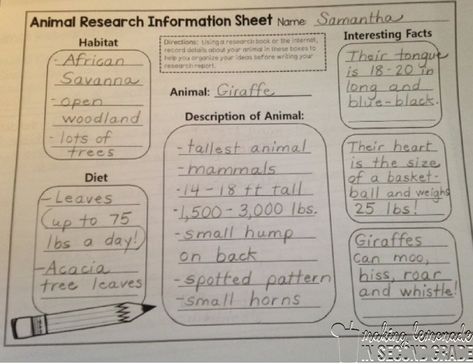 Animal Research Information Sheet Name: Samantha
Habitat
- African
Savanna
- open
woodland
- lots of
trees
Directions: Using a research book or the internet,
record details about your animal in these boxes to
help you organize your ideas before writing your
research report.
Animal: Giraffe
Description of Animal:
- tallest animal
- mammals
- 14 - 18 ft tall
- 1,500 - 3,000 lbs.
- small hump
on back
- spotted pattern
- small horns
Interesting Facts
Their tongue
is 18-20 in
long and
blue-black.
Their heart
is the size
of a basket-
ball and weighs
25 lbs!
Giraffes
can moo,
hiss, roar
and whistle!
Diet
- Leaves
(up to 75
lbs a day!)
- Acacia
tree leaves
making lemonade
IN SECOND GRADE